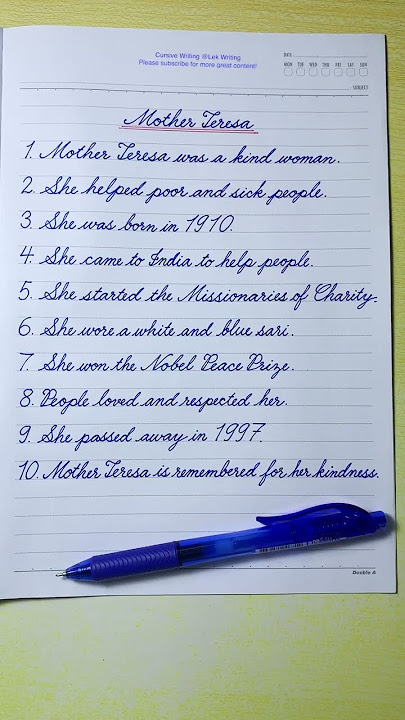 Cursive Writing @Lek Writing
Please subscribe for more great content!
DATE:
MON TUE WED THU FRI SAT SUN
SUBJECT:
Mother Teresa
1. Mother Teresa was a kind woman.
2. She helped poor and sick people.
3. She was born in 1910.
4. She came to India to help people.
5. She started the Missionaries of Charity.
6. She wore a white and blue sari.
7. She won the Nobel Peace Prize.
8. People loved and respected her.
9. She passed away in 1997.
10. Mother Teresa is remembered for her kindness.
Double A